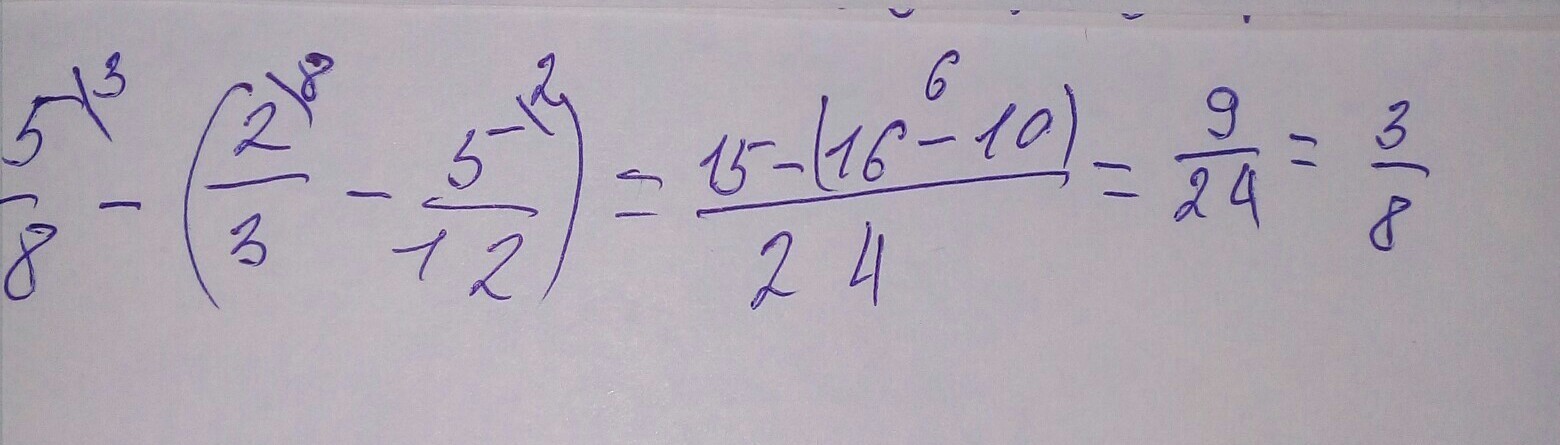 5\3/8 - (2\8/3 - 5\2/12) = (15-(16-10)6)/24 = 9/24 = 3/8